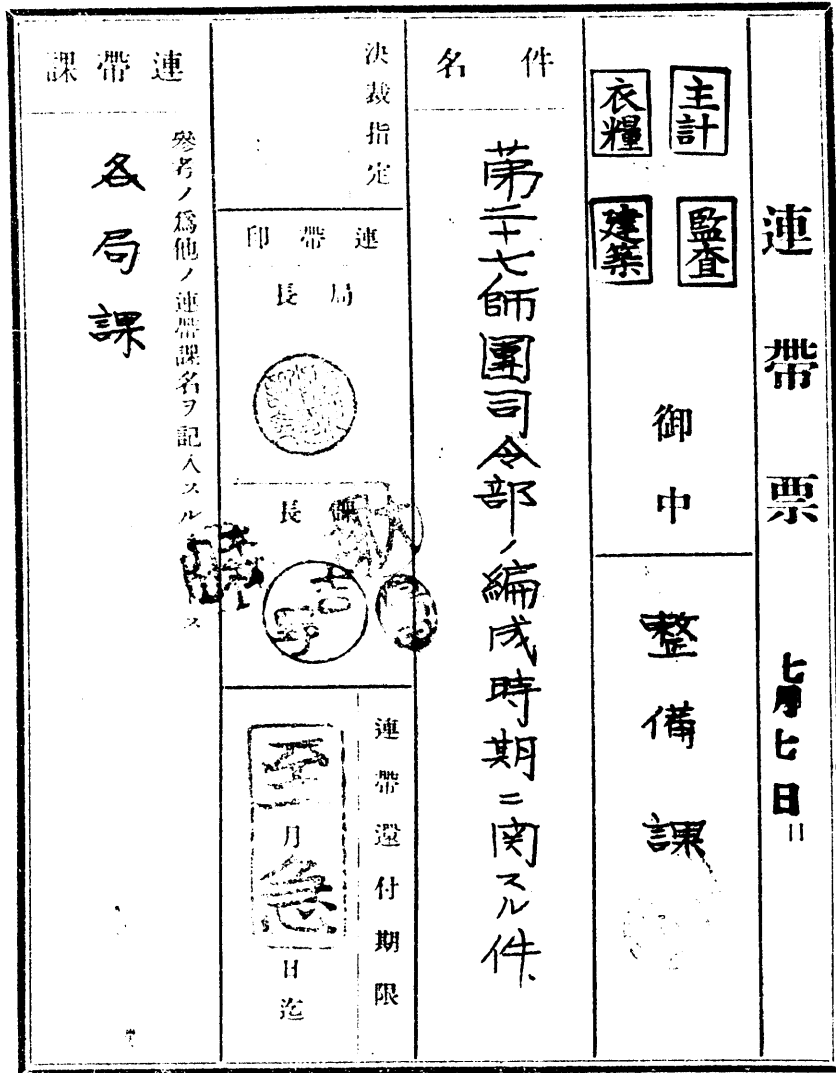 連帶票
七月七日
主計
監査
衣糧
建築
御中
整備課
件名
第二十七師團司令部ノ編成時期ニ関スル件
決裁指定
連帶印
局長
課長
連帶還付期限
至急
月
日迄
連帶課
參考ノ爲他ノ連帶課名ヲ記入スル
ス
各局課